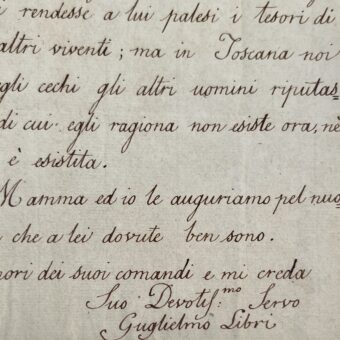 i rendesse a lui palesi i tesori di
altri viventi; ma in Toscana noi
egli cechi gli altri uomini riputas=
di cui egli ragiona non esiste ora, nè
è esistita.
Mamma ed io le auguriamo pel nuo=
che a lei dovute ben sono.
nori dei suoi comandi e mi creda
Suo Devotis:mo Servo
Guglielmo Libri